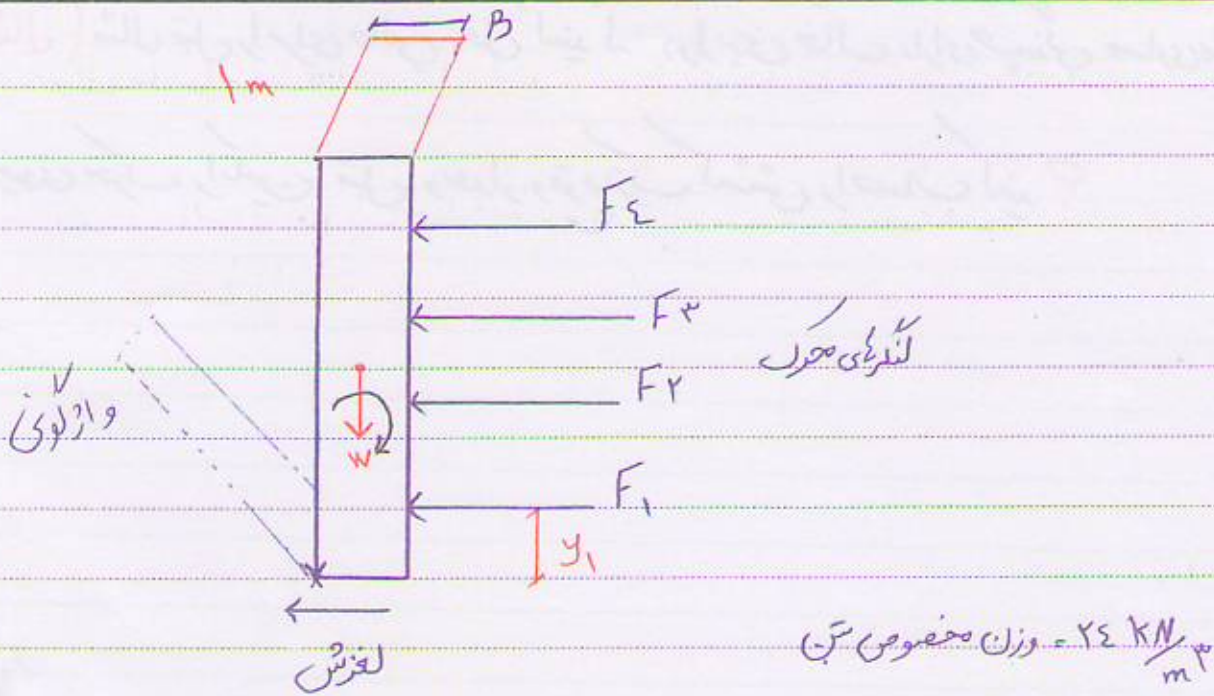 B
1 m
F٤
F٣
لنگرهای محرک
F٢
واژگونی
W
F١
y١
لغزش
وزن مخصوص بتن = ٢٤ kN/m³